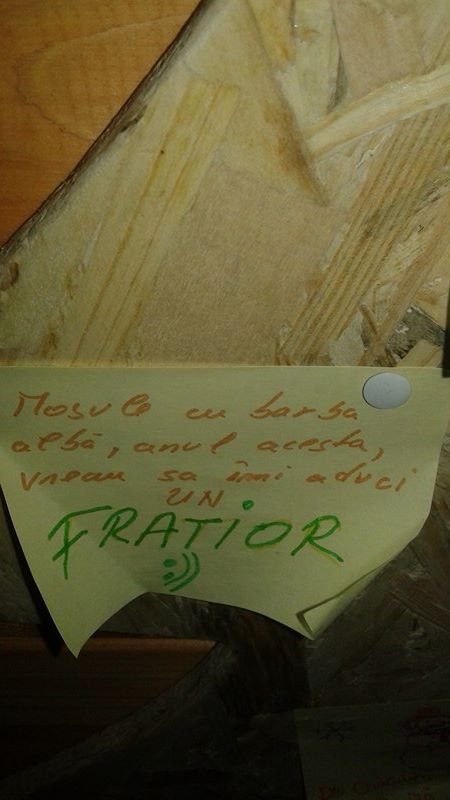 Mosule cu barba
albă, anul acesta,
vreau sa îmi aduci
UN
FRATIOR
:))